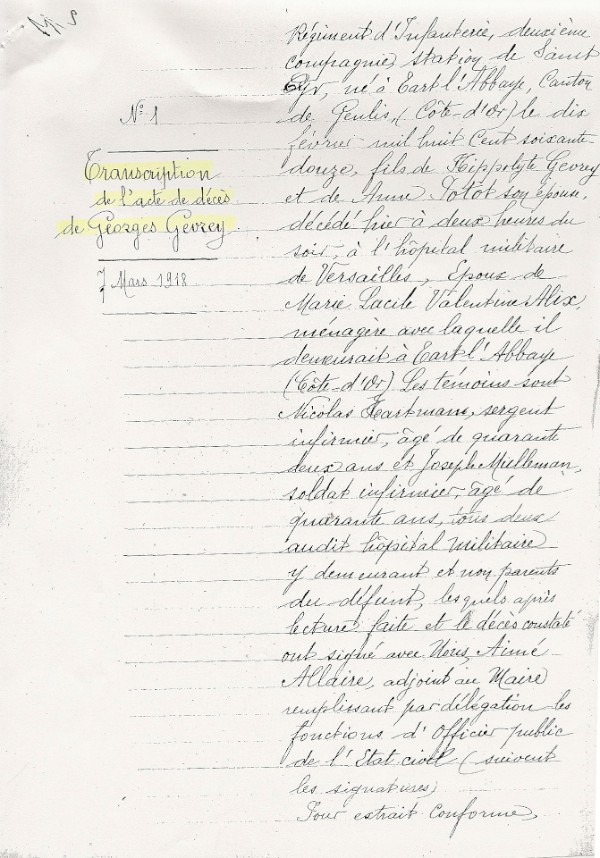 N° 1
Transcription
de l'acte de décès
de Georges Gevrey.
7 Mars 1918
Régiment d'Infanterie, deuxième
compagnie, station de Saint
Cyr, né à Tart l'Abbaye, Canton
de Genlis, (Côte-d'Or) le dix
février mil huit Cent soixante
douze, fils de Hippolyte Gevrey
et de Anne Potot son épouse,
décédé hier à deux heures du
soir, à l'hôpital militaire
de Versailles, Epoux de
Marie Lucile Valentine Alix,
ménagère avec laquelle il
demeurait à Tart l'Abbaye
(Côte-d'Or) Les témoins sont
Nicolas Hartmann, sergent
infirmier, âgé de quarante
deux ans et Joseph Muelleman,
soldat infirmier, âgé de
quarante ans, tous deux
audit hôpital militaire
y demeurant et non parents
du défunt, lesquels après
lecture faite et le décès constaté
ont signé avec Nous, Aimé
Allaire, adjoint au Maire
remplissant par délégation les
fonctions d'Officier public
de l'Etat civil (suivent
les signatures)
Pour extrait conforme,